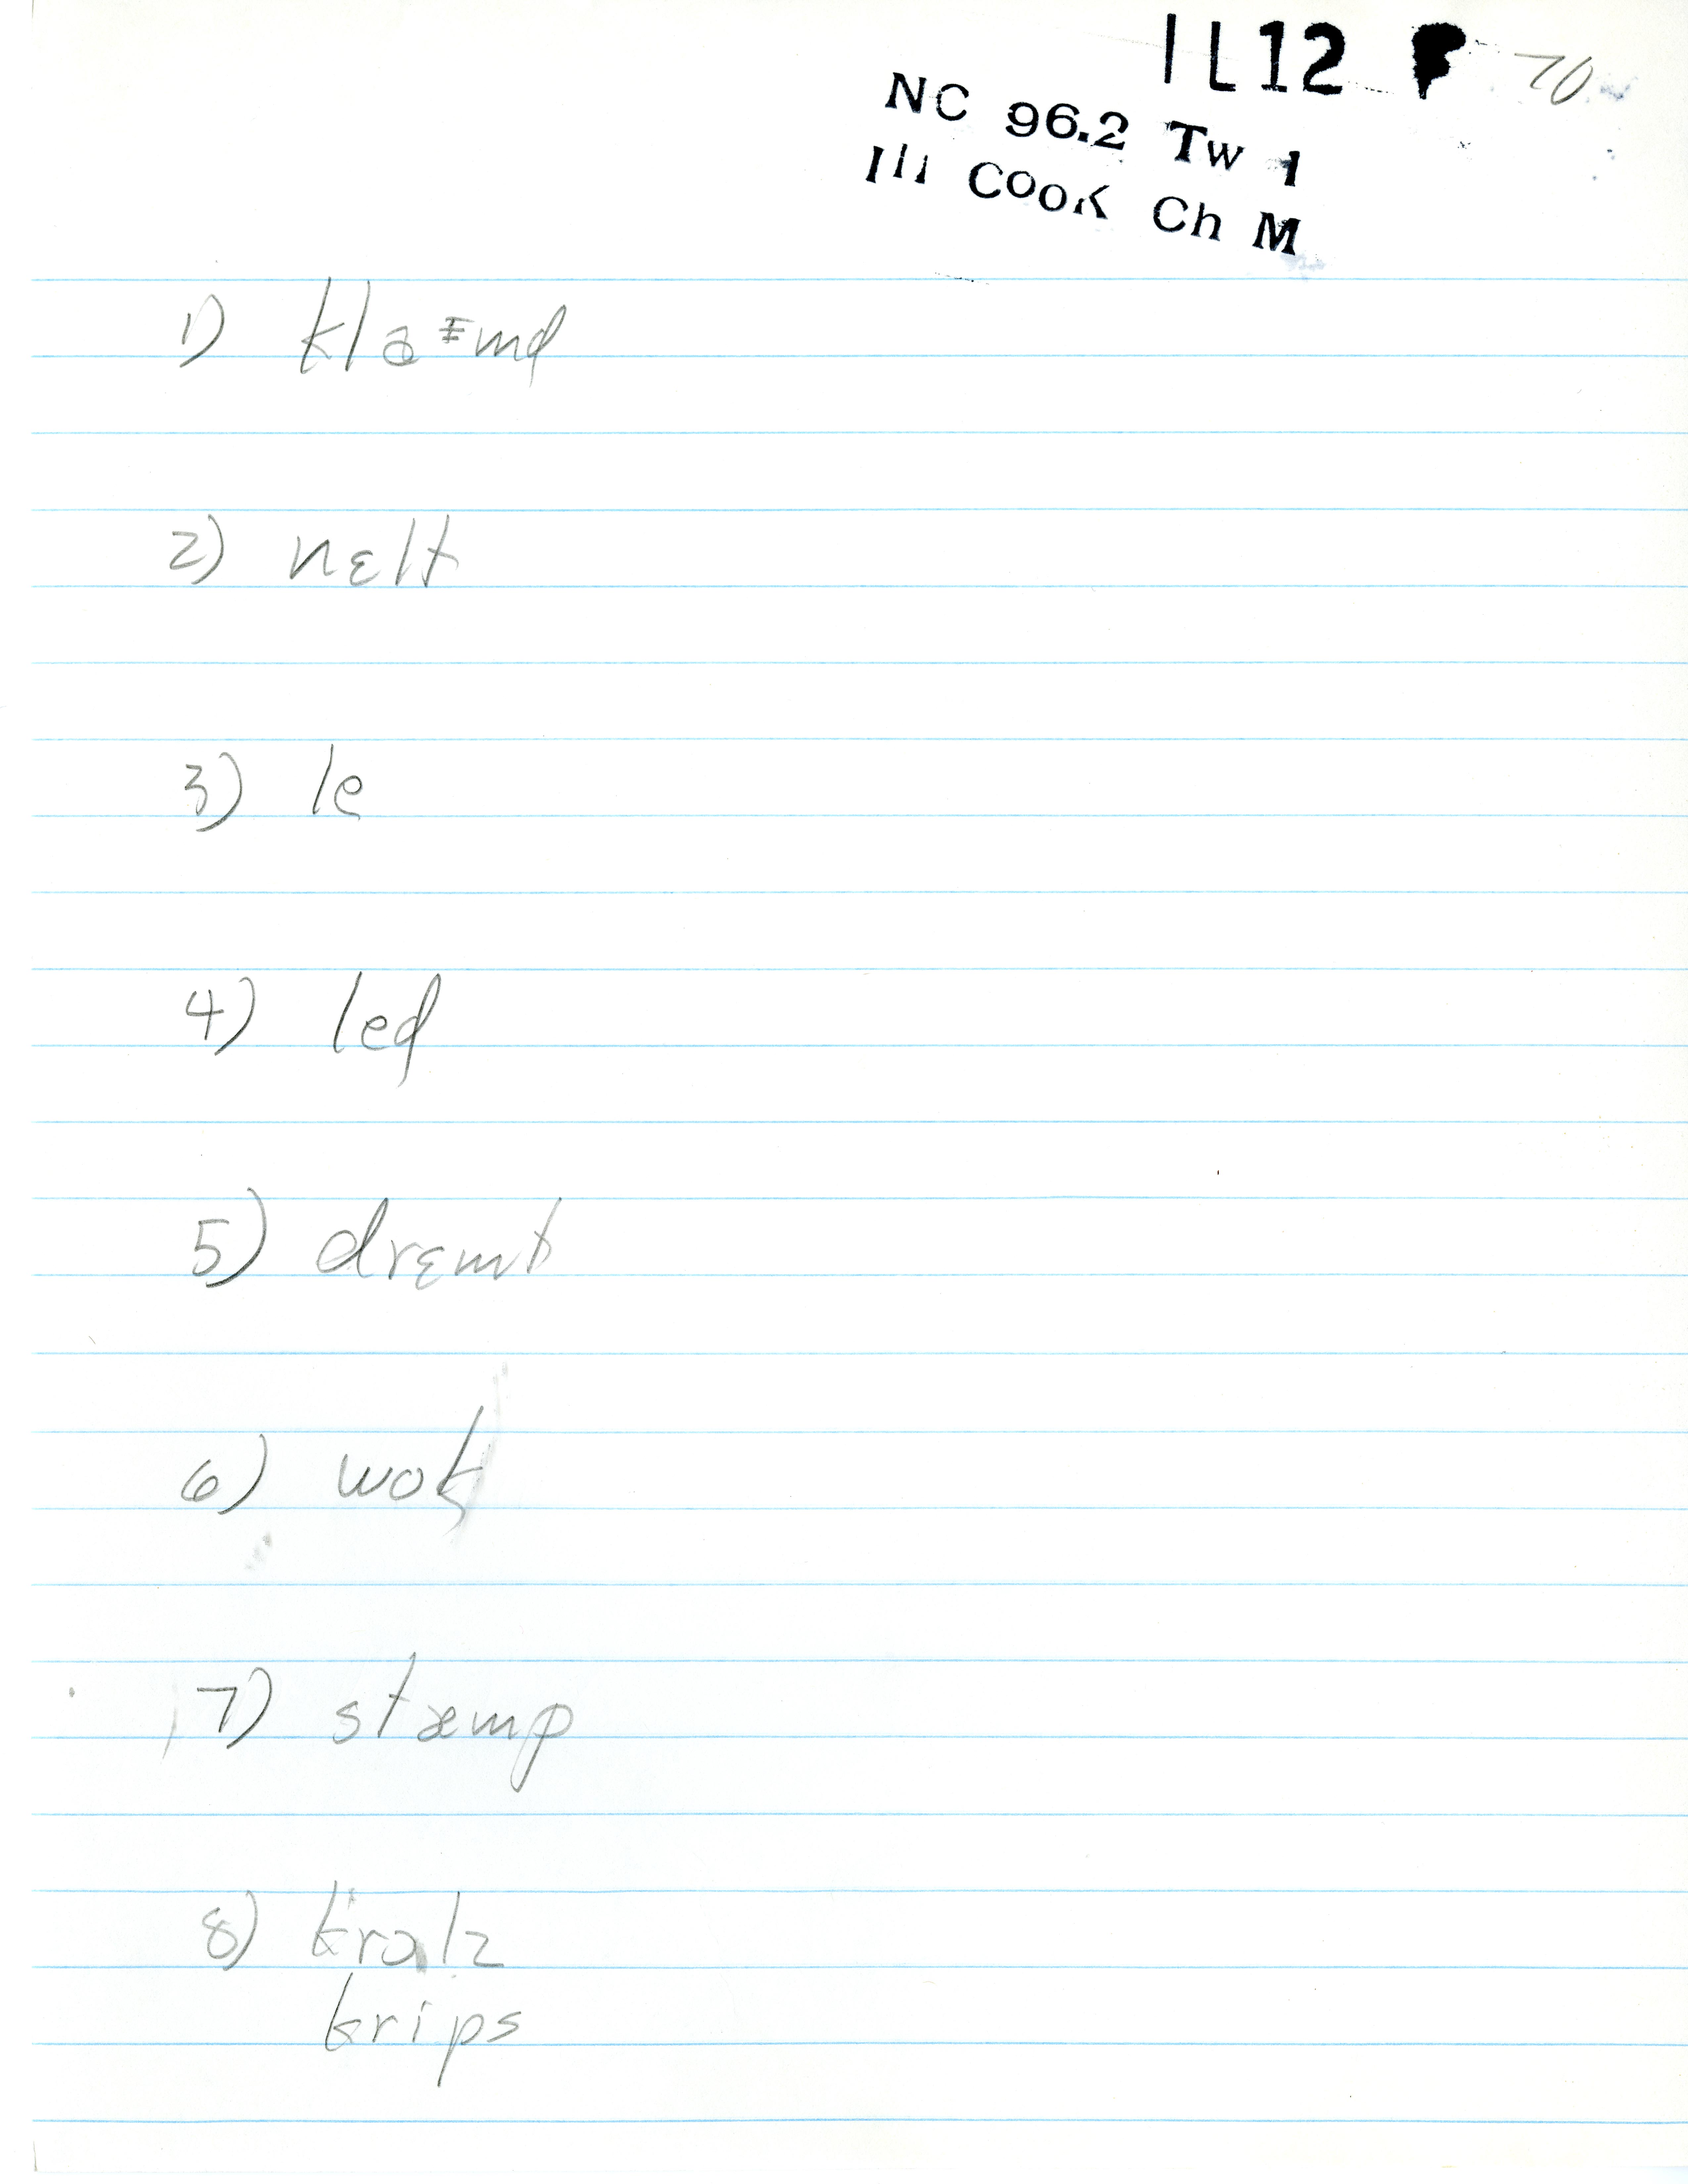 IL12 P 70
NC 96.2 Tw 1
Ill Cook Ch M
1) klaɨmd
2) nɛlt
3) le
4) led
5) drɛmt
6) wok
7) stæmp
8) kralz
krips